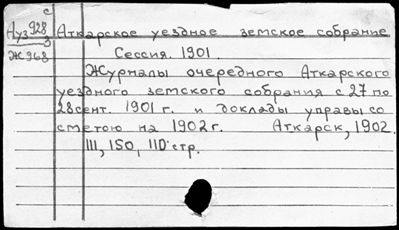 с
Ауз 928 Аткарское уездное земское собрание
3
Ж 968 Сессия. 1901.
Журналы очередного Аткарского
уездного земского собрания с 27 по
28 сент. 1901 г. и доклады управы со
сметою на 1902 г. Аткарск, 1902.
III, 150, 110 стр.